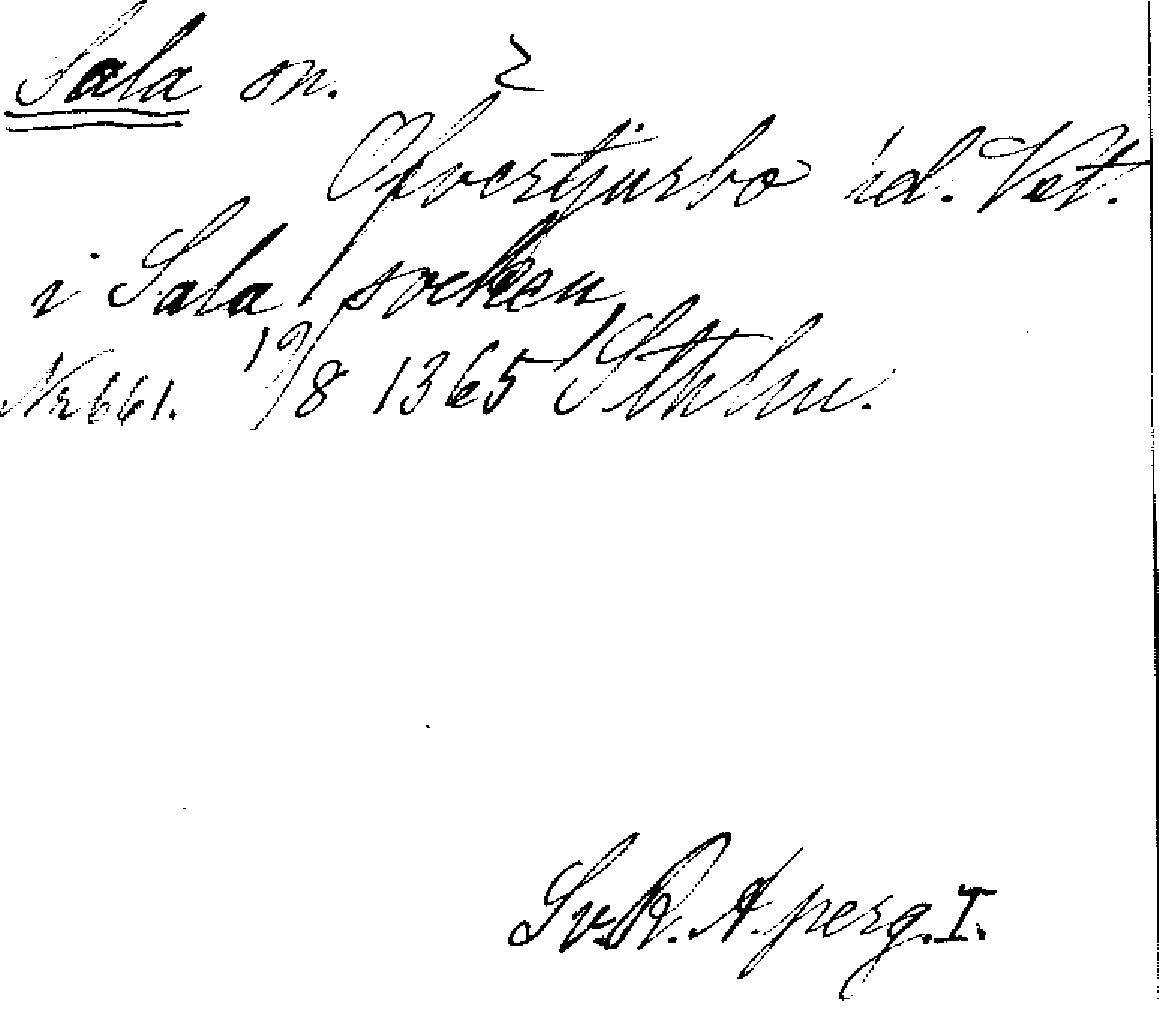 Sala sn.
Öfvertjurbo hd. Vet.
i Sala socken
Nr 661. 19/8 1365 Sthlm.
Sv. R. A. perg. I.